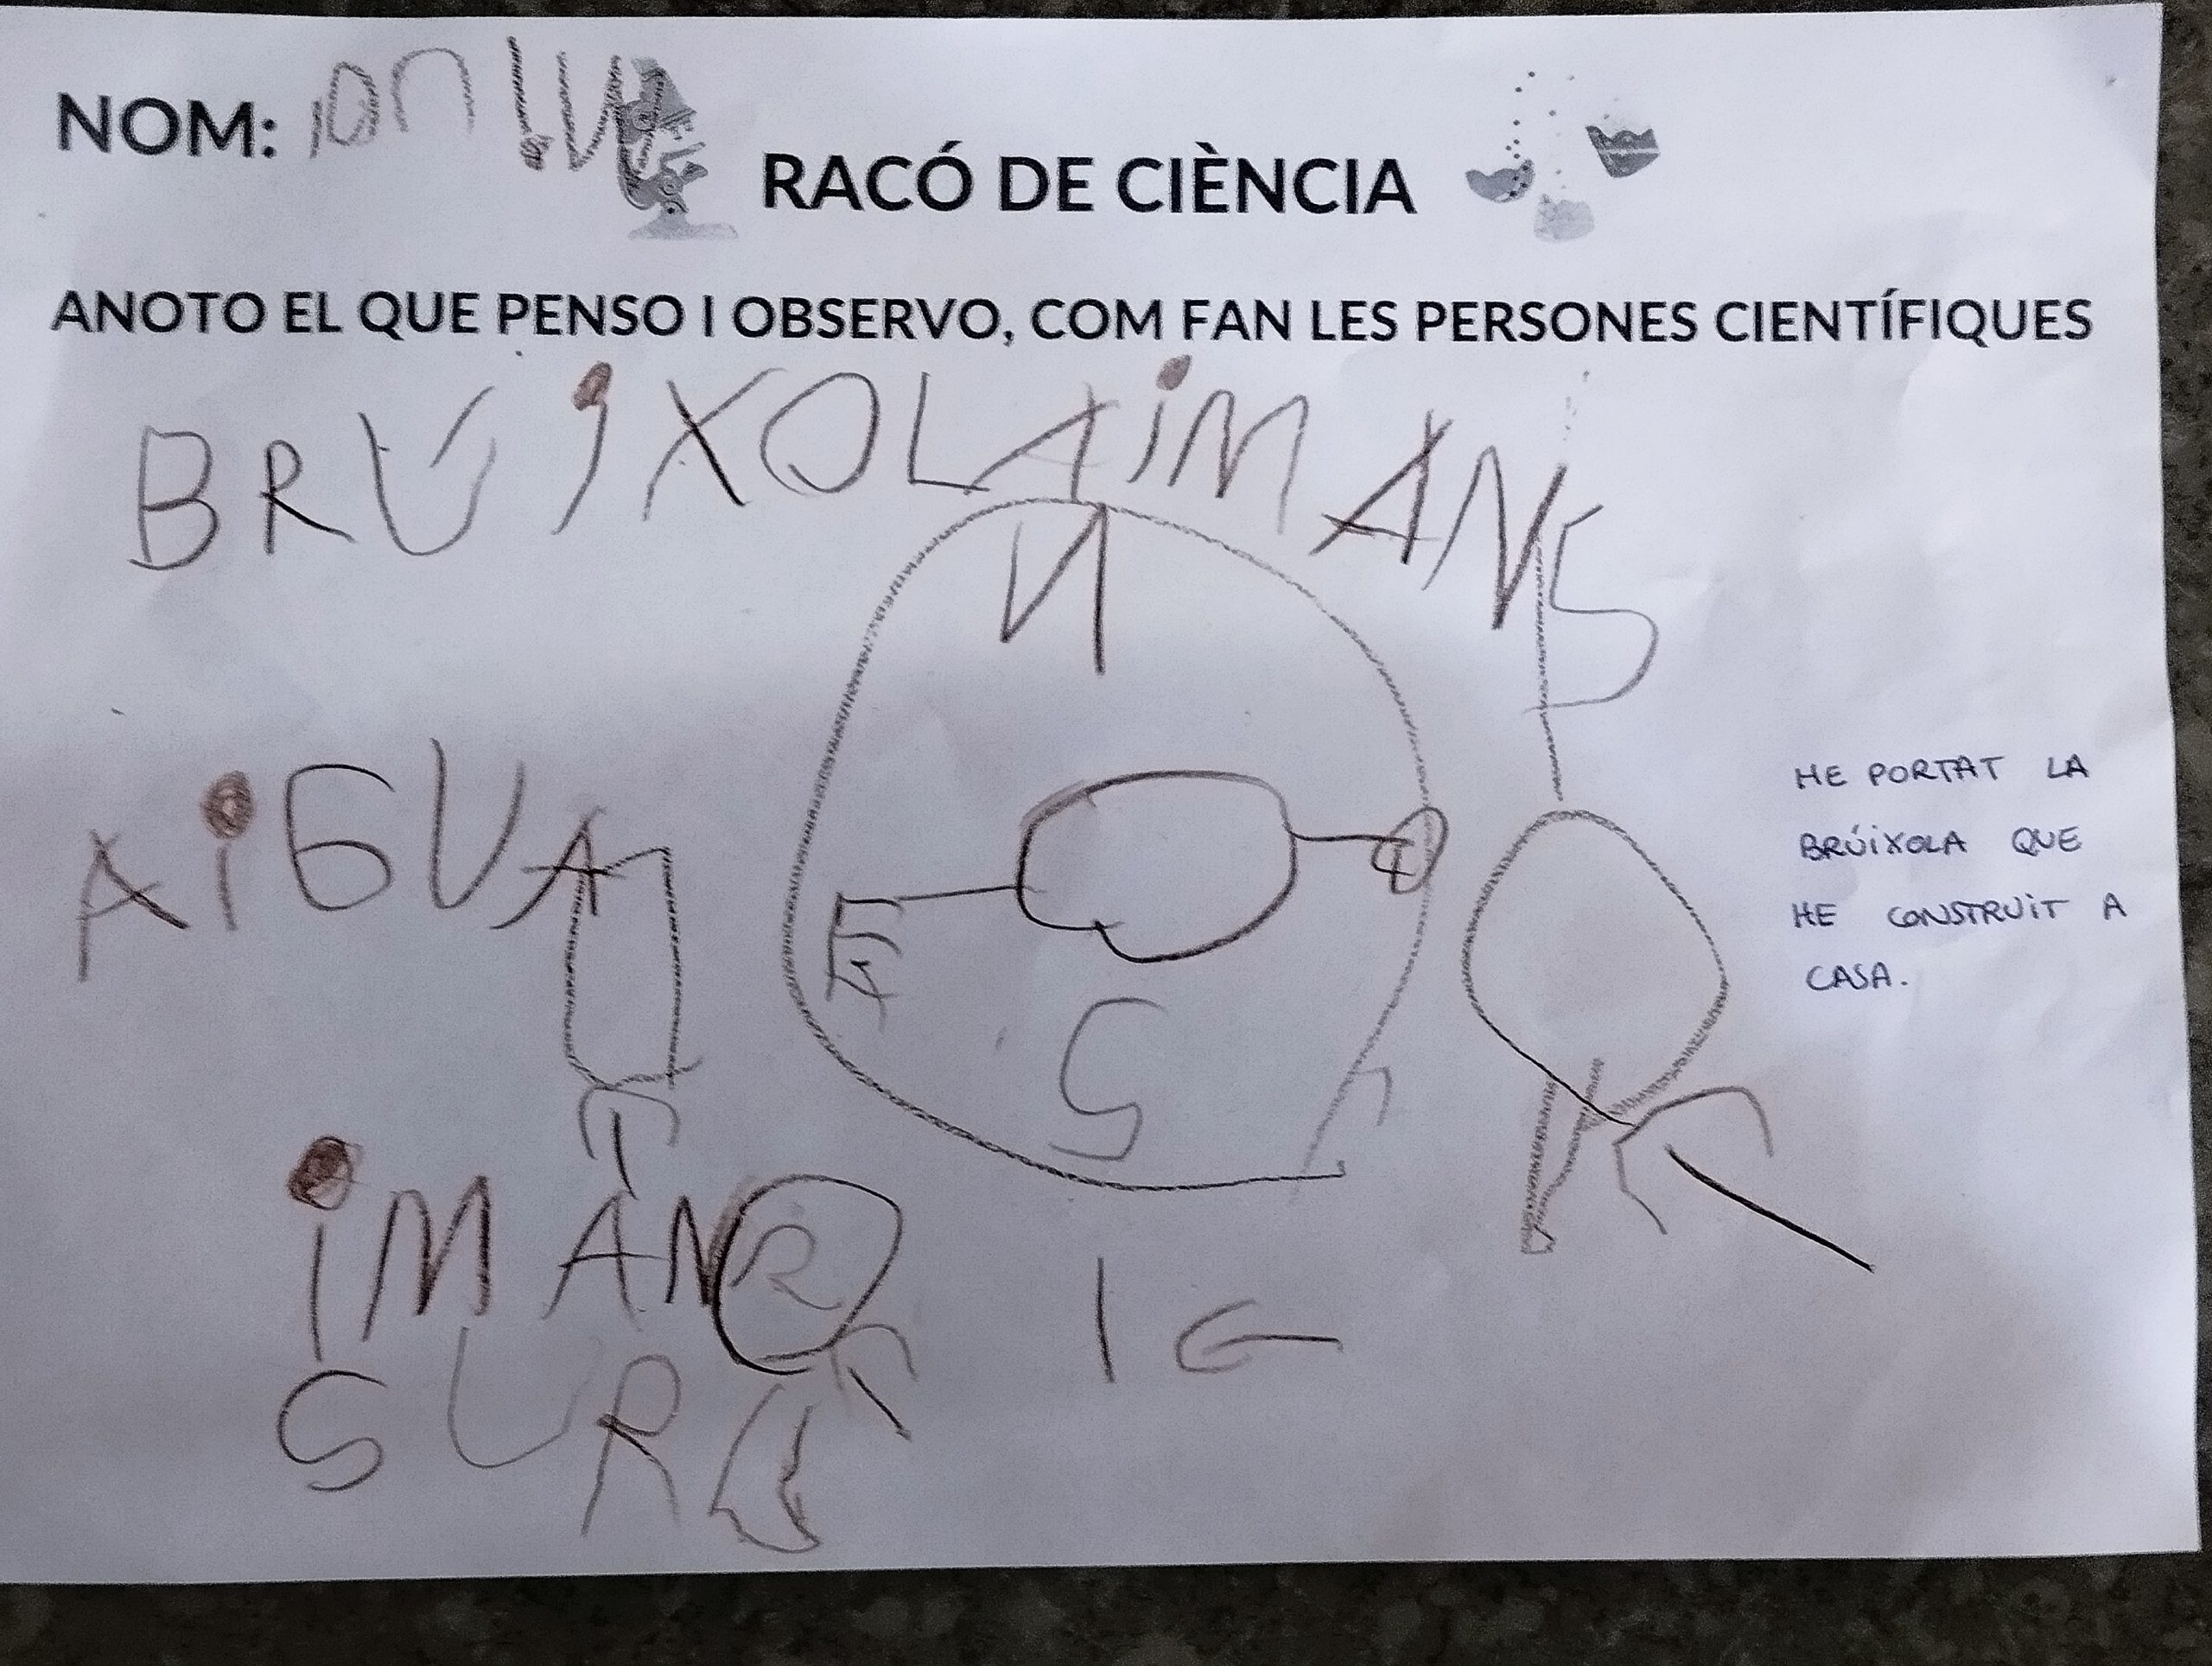 NOM:
RACÓ DE CIÈNCIA
ANOTO EL QUE PENSO I OBSERVO, COM FAN LES PERSONES CIENTÍFIQUES
BRUiXOLAiMANS
N
AiGUA
E
S
HE PORTAT LA
BRÚiXOLA QUE
HE CONSTRUiT A
CASA.
iMAN
SUR